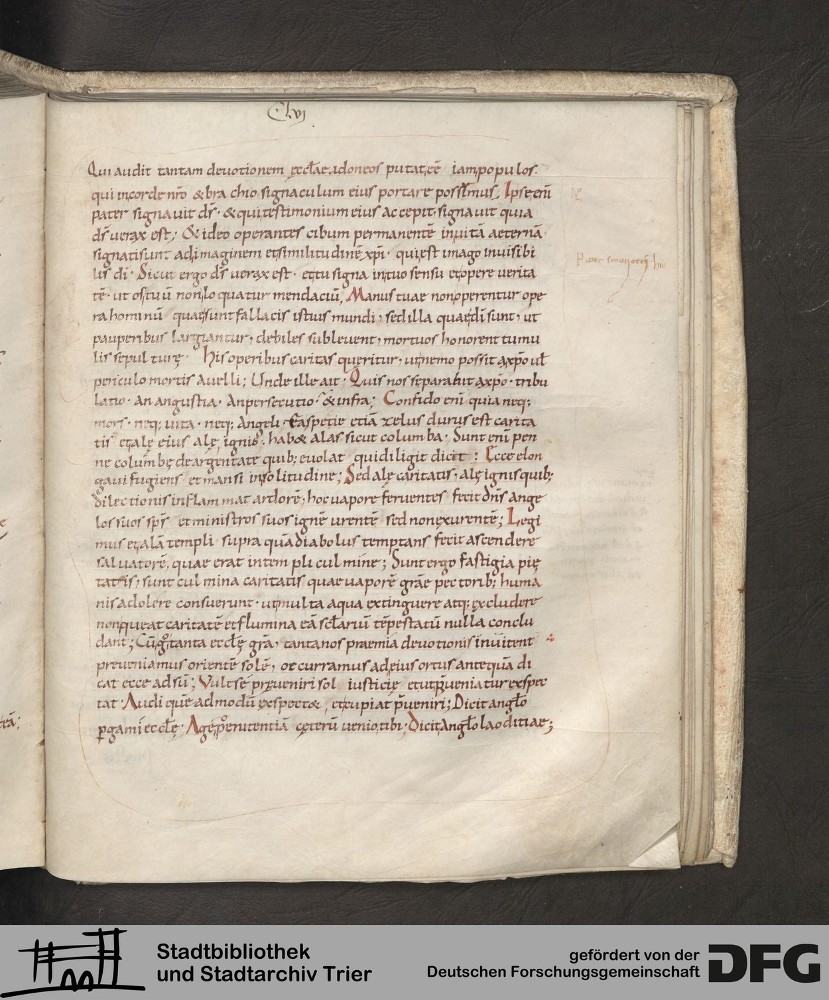 Clvj
Qui audit tantam devotionem eccl̄ae. idoneos putat. eē iampopulos.
qui incorde nr̄o &brachio signaculum eius portare possimus. Ipse. enī
pater signavit dr̄. &quitestimonium eius accepit. signavit quia
dr̄ verax est; &ideo operantes cibum permanentē invitā aeternā.
signatisunt adimaginem etsimilitudinē xp̄i. quiest imago invisibi
lis di. Sicut ergo dr̄ verax est. ettu signa intuo sensu etopere verita
tē. ut ostuū nonloquatur mendaciū, Manus tuae nonoperentur ope
ra hominū quaesunt fallacis istius mundi, sed illa quaedīsunt, ut
pauperibus largiantur, debiles sublevent, mortuos honorent tumu
lis sepulturę. His operibus caritas queritur, utnemo possit axp̄o ul̄
periculo mortis avelli; Unde ille ait. Quis nos separabit axp̄o. tribu
latio. an angustia. anpersecutio. &infra; Confido enī quia neq;
mors. neq; vita. neq; Angeli. Easpetie etiā xelus durus est carita
tis etalę eius alę, ignis. hab& alas sicut columba. Sunt enī pen
ne columbę deargentate quib; evolat quidiligit dicit : Ecce elon
gavi fugiens et mansi insolitudine; Sed alę caritatis. alę ignis quib;
dilectionis inflammat ardorē, hoc vapore ferventes fecit dn̄s ange
los suos sp̄s et ministros suos ignē urentē sed nonexurentē; Legi
mus etalā templi supra quā diabolus temptans fecit ascendere
salvatorē, quae erat intempli culmine; Sunt ergo fastigia pię
tatis, sunt culmina caritatis quae vaporē grāe pectorib; huma
nis adolere consuerunt. utmulta aqua extinguere atq; excludere
nonqueat caritatē etflumina eā sclārū tēpestatū nulla conclu
dant; Cū tanta eccl̄ę grā, tantanos praemia devotionis invitent
preveniamus orientē solē, occurramus adeius ortus antequā di
cat ecce adsū; Vult sē preveniri sol iusticię etutpveniatur exspec
tat. Audi quē admodū exspect&, etcupiat p̄veniri; Dicit anglō
pgami eccl̄ę. Age penitentiā cęterū venio tibi. Dicit anglō laoditiae;